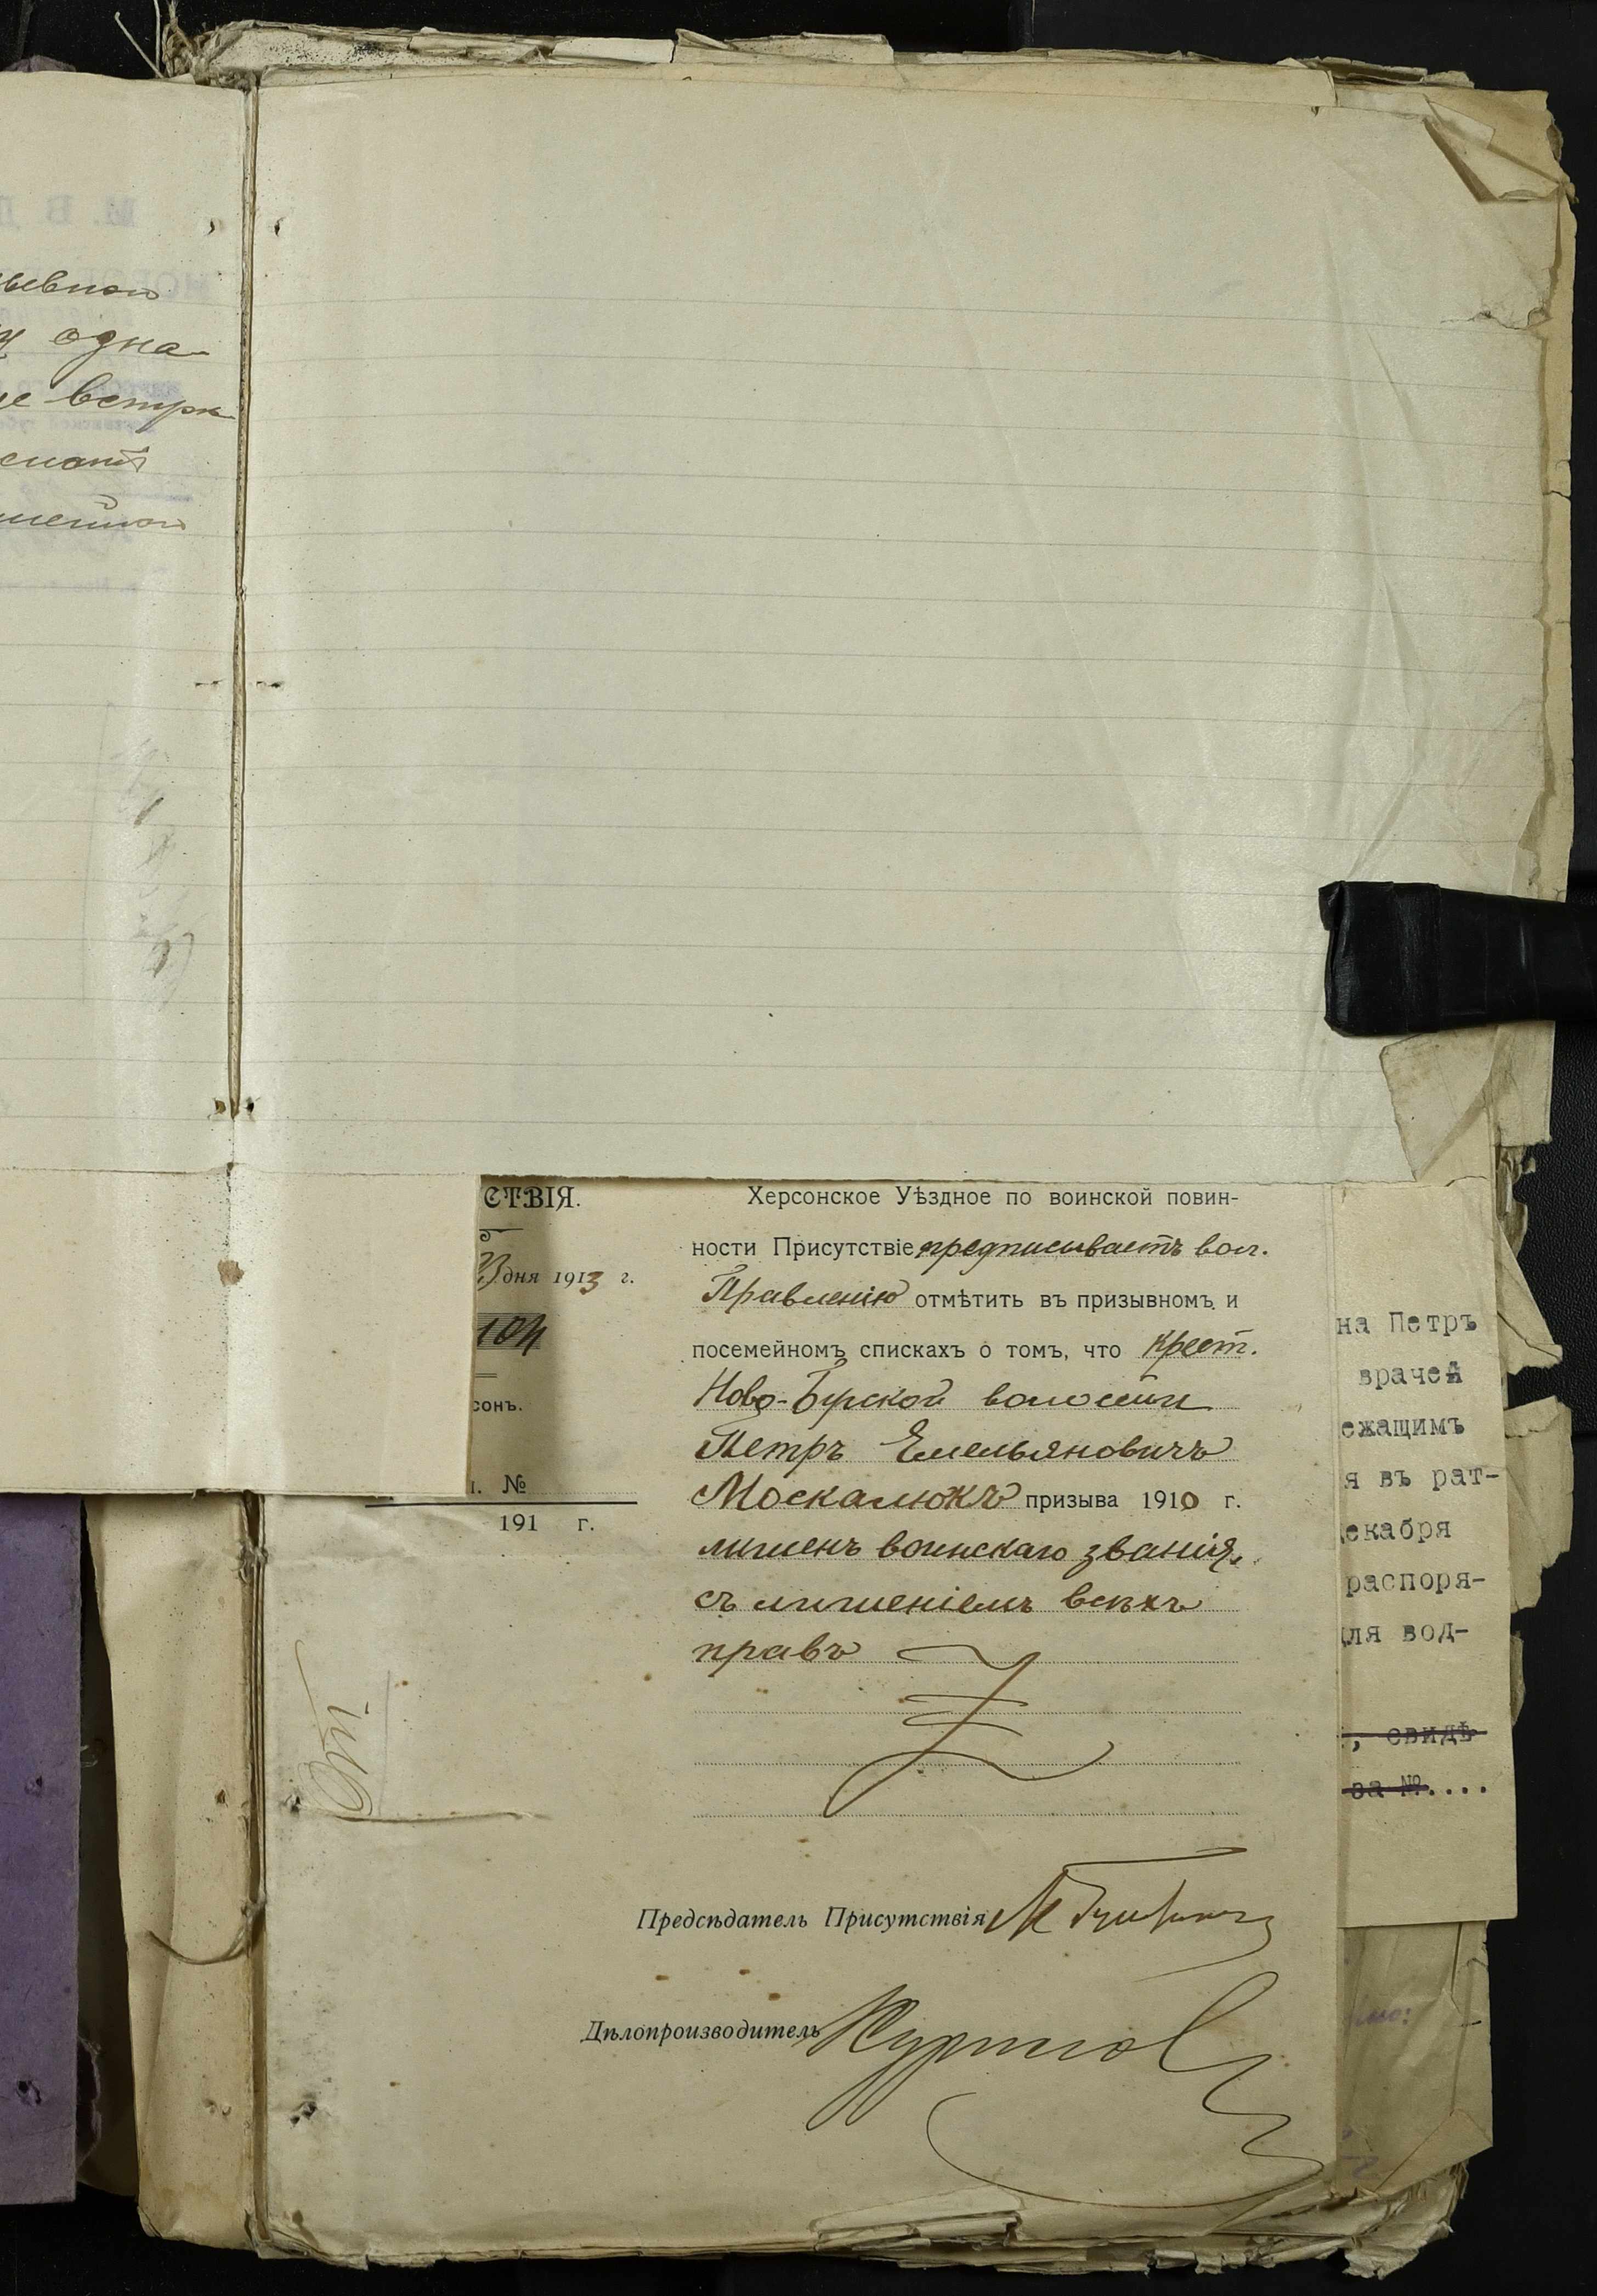 одна
СТВІЯ.
дня 1913 г.
104
сонъ.
№
191 г.
Херсонское Уѣздное по воинской повин-
ности Присутствіе предписываетъ вол.
Правленію отмѣтить въ призывномъ и
посемейномъ спискахъ о томъ, что крест.
Ново-Бугской волости
Петръ Емельяновичъ
Москалюкъ призыва 1910 г.
лишенъ воинскаго званія,
съ лишеніемъ всѣхъ
правъ
Предсѣдатель Присутствія
Дѣлопроизводитель
на Петръ
врачей
ежащимъ
я въ рат-
екабря
распоря-
ля вод-
, свидѣ
за №....